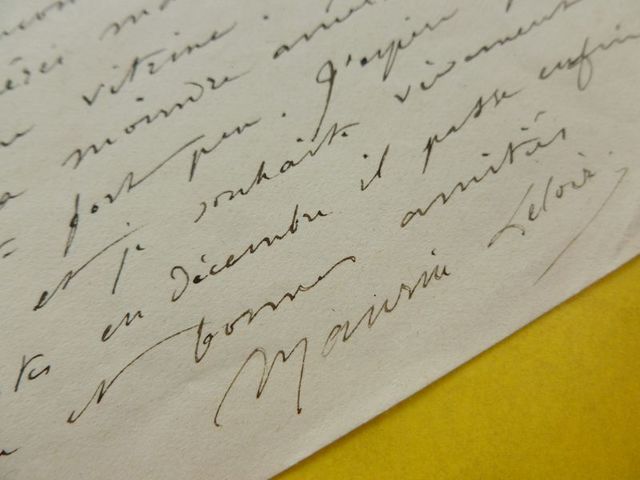 vitrine.
moindre
fort peu. J'espère
et je souhaite vivement
en décembre il passe enfin
et bonnes amitiés
Maurice Leloir.